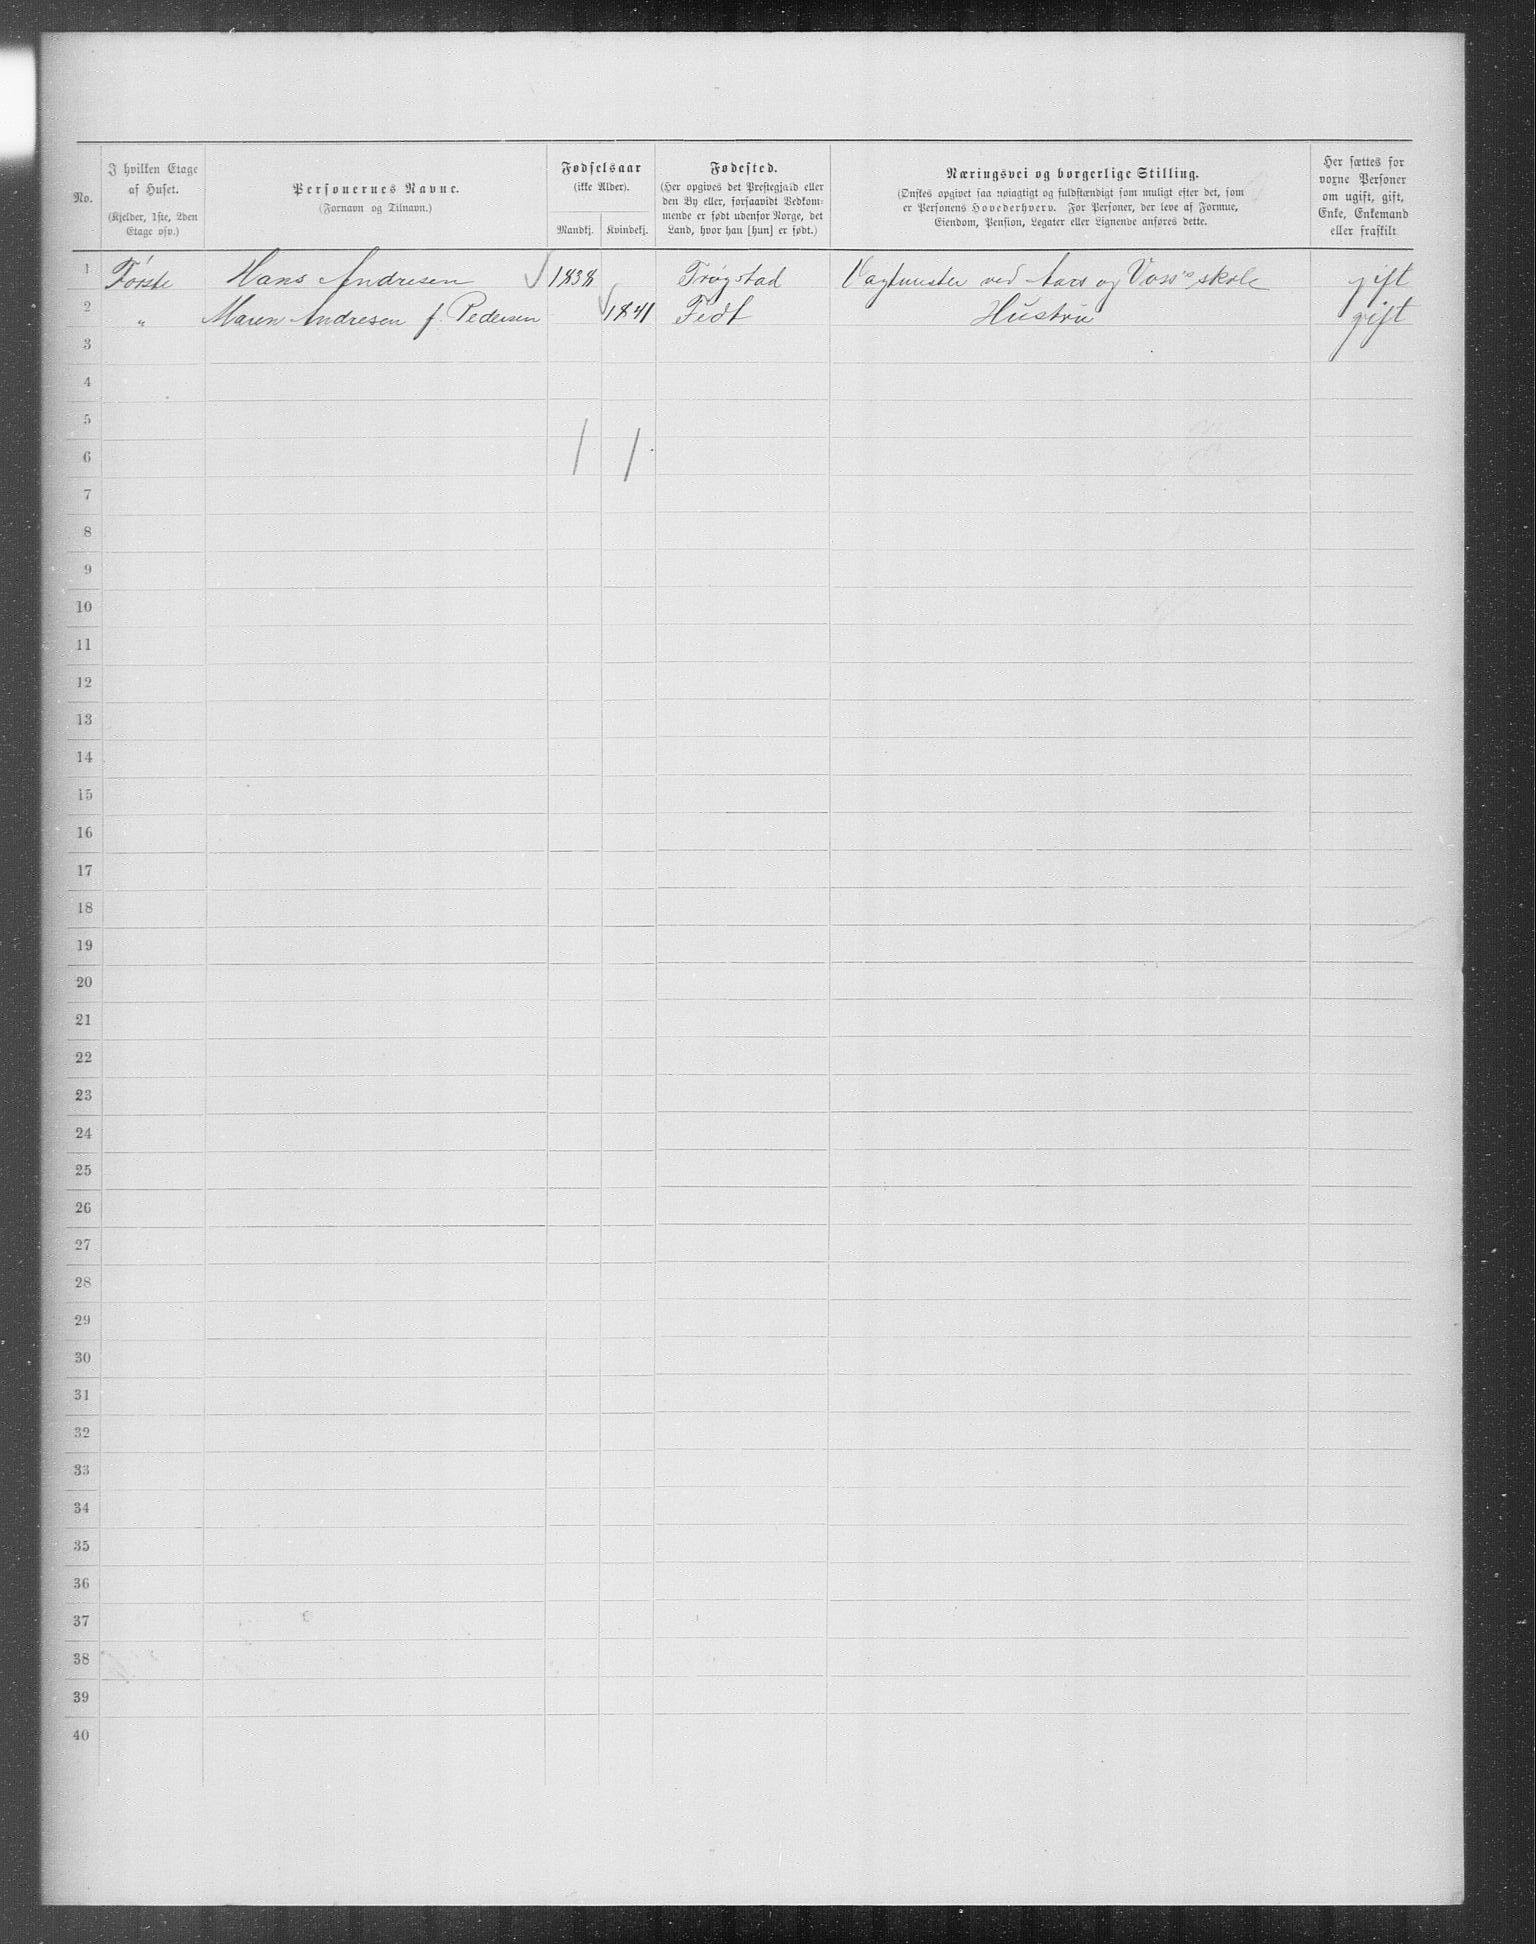 No.
I hvilken Etage
af Huset.
(Kjelder, 1ste, 2den
Etage osv.)
Personernes Navne.
(Fornavn og Tilnavn.)
Fødselsaar
(ikke Alder).
Mandkj. Kvindekj.
Fødested.
(Her opgives det Prestegjæld eller
den By eller, forsaavidt Vedkom-
mende er født udenfor Norge, det
Land, hvor han [hun] er født.)
Næringsvei og borgerlige Stilling.
(Ønskes opgivet saa nøiagtigt og fuldstændigt som muligt efter det, som
er Personens Hovederhverv. For Personer, der leve af Formue,
Eiendom, Pension, Legater eller Lignende anføres dette.
Her sættes for
voxne Personer
om ugift, gift,
Enke, Enkemand
eller fraskilt
1 Første Hans Andresen 1838 Trøgstad Vagtmester ved Aars og Voss's skole gift
2 " Maren Andresen f. Pedersen 1841 Fedt Hustru gift
3
4
5
6
7
8
9
10
11
12
13
14
15
16
17
18
19
20
21
22
23
24
25
26
27
28
29
30
31
32
33
34
35
36
37
38
39
40